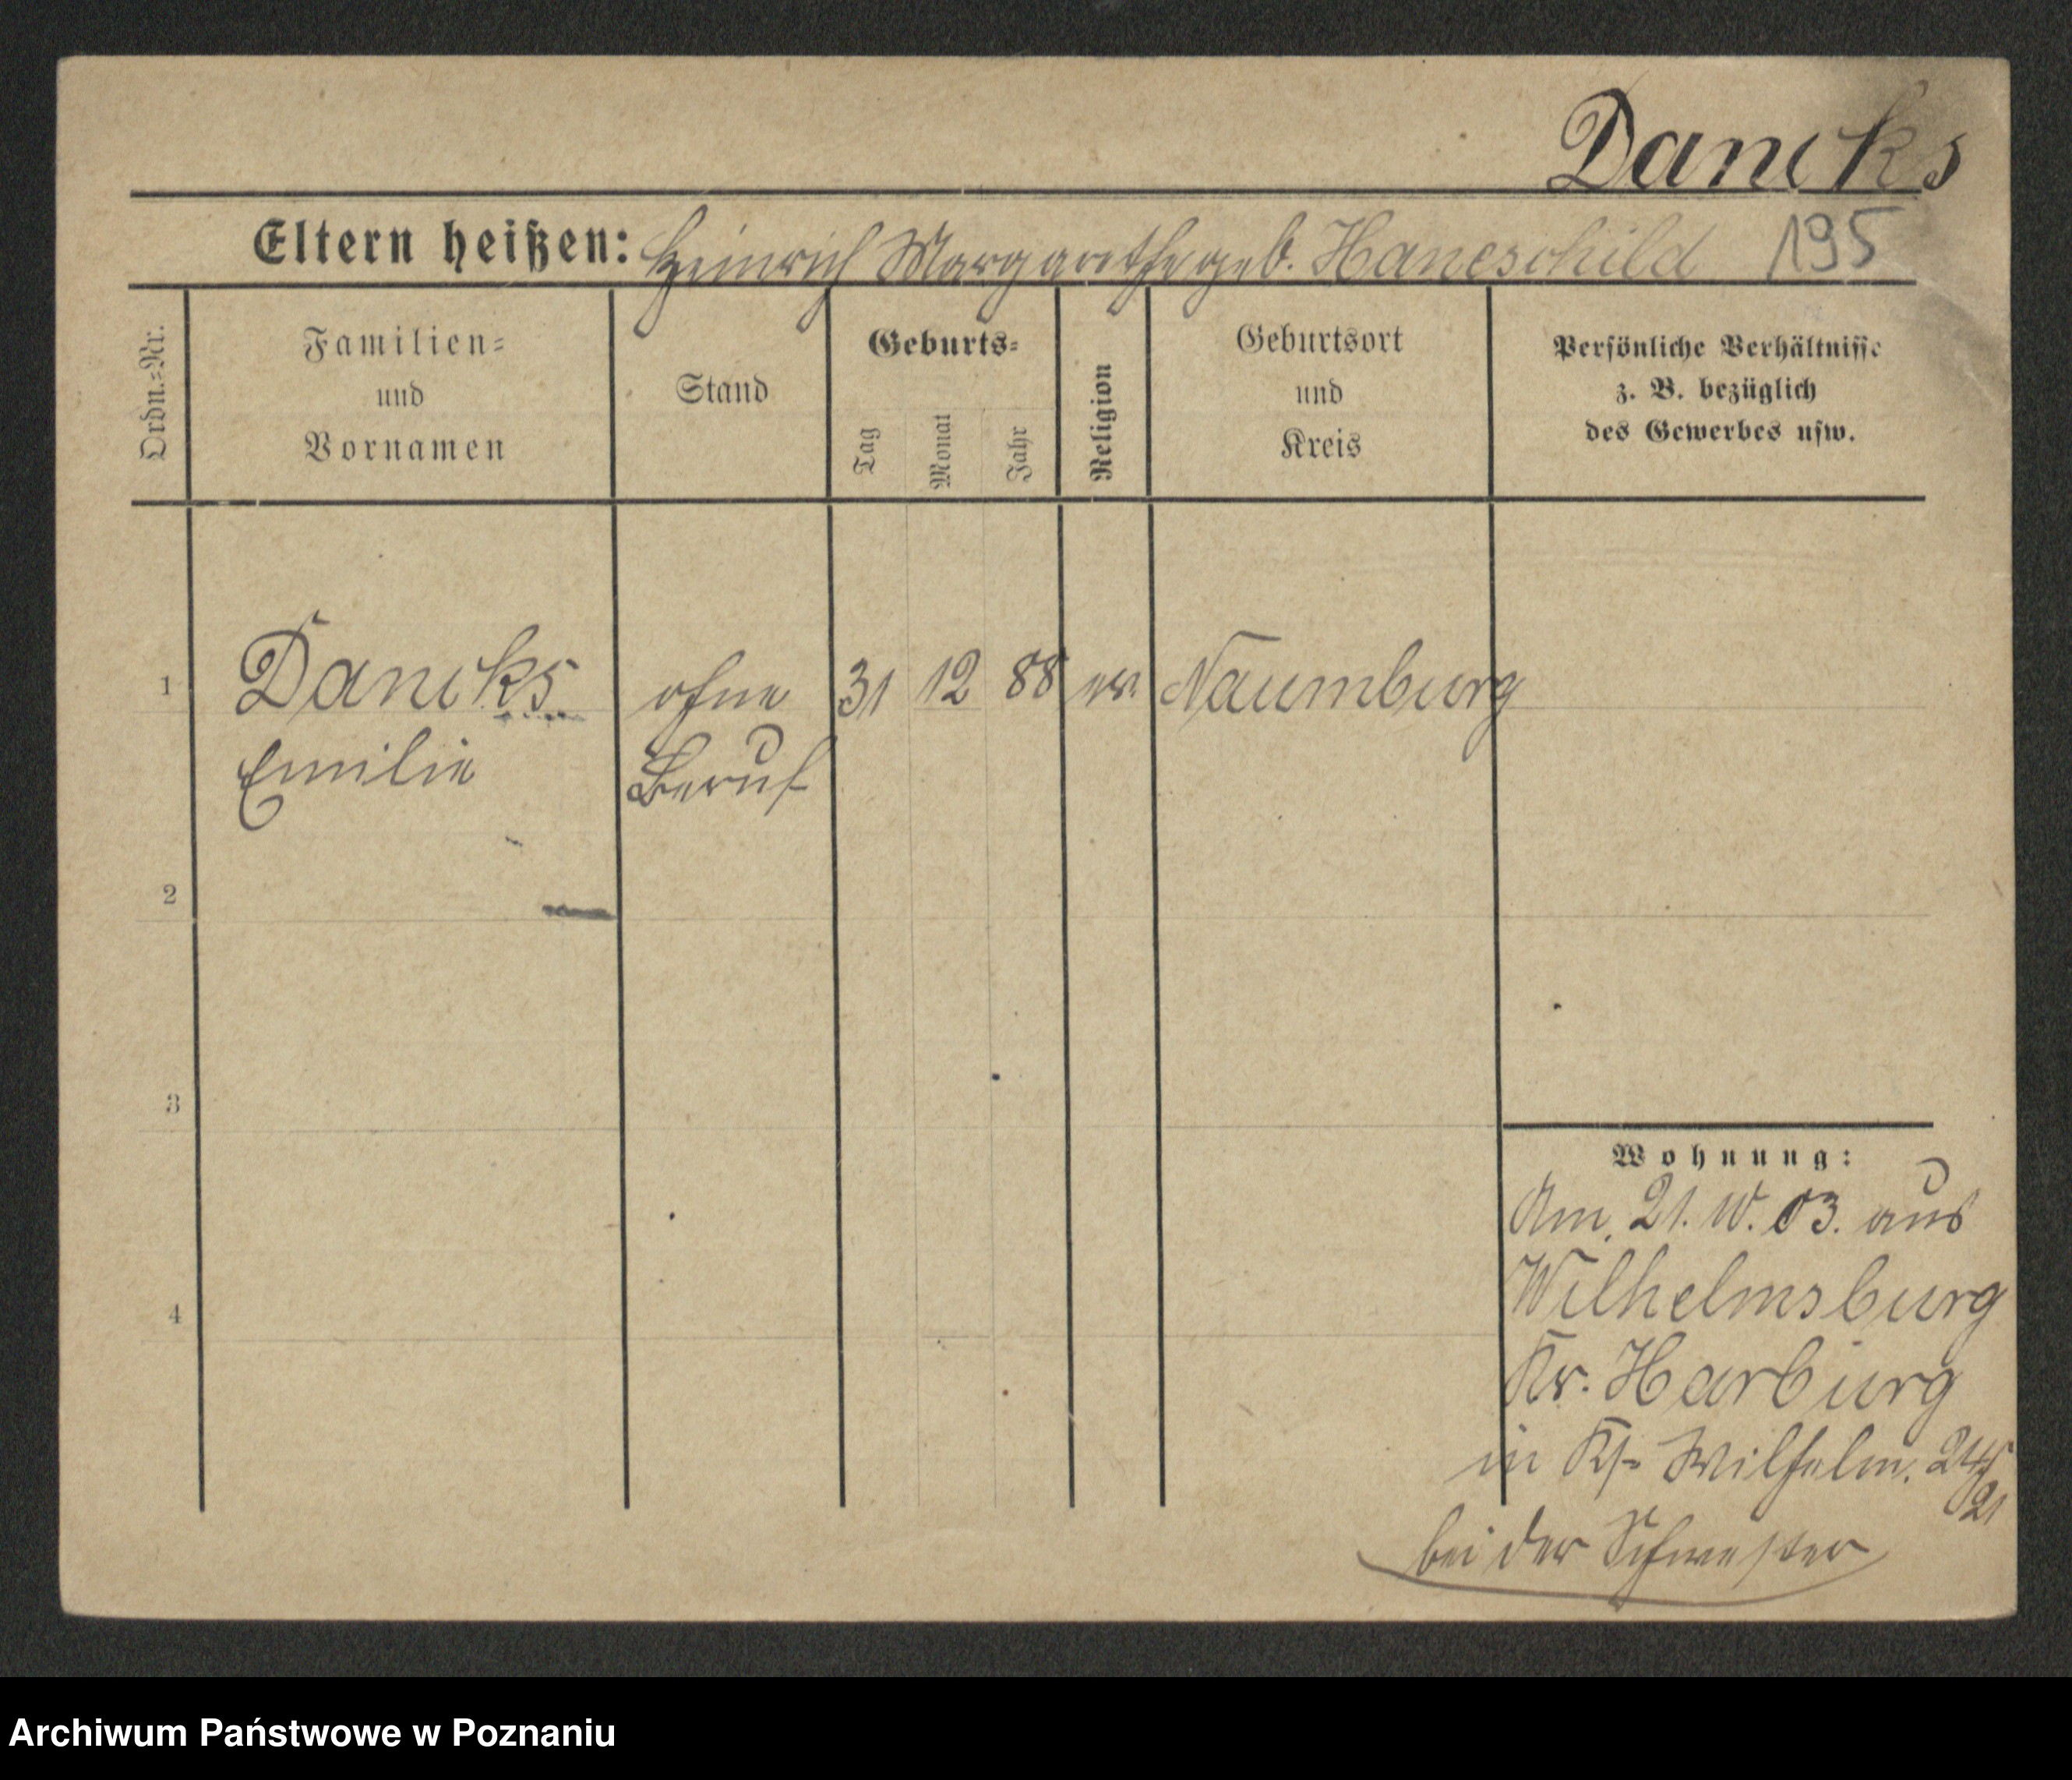 Dancks
Eltern heißen: Heinrich Margarethe geb. Haneschild 195
Ordn.=Nr.
Familien=
und
Vornamen
Stand
Geburts=
Tag
Monat
Jahr
Religion
Geburtsort
und
Kreis
Persönliche Verhältnisse
z. B. bezüglich
des Gewerbes usw.
1 Dancks ohne 31 12 88 ev. Naumburg
Emilie Beruf
2
3
4
Wohnung:
Am 21. 10. 03. aus
Wilhelmsburg
Kr. Harburg
in Wilhelm.
bei der Schwester
Archiwum Państwowe w Poznaniu